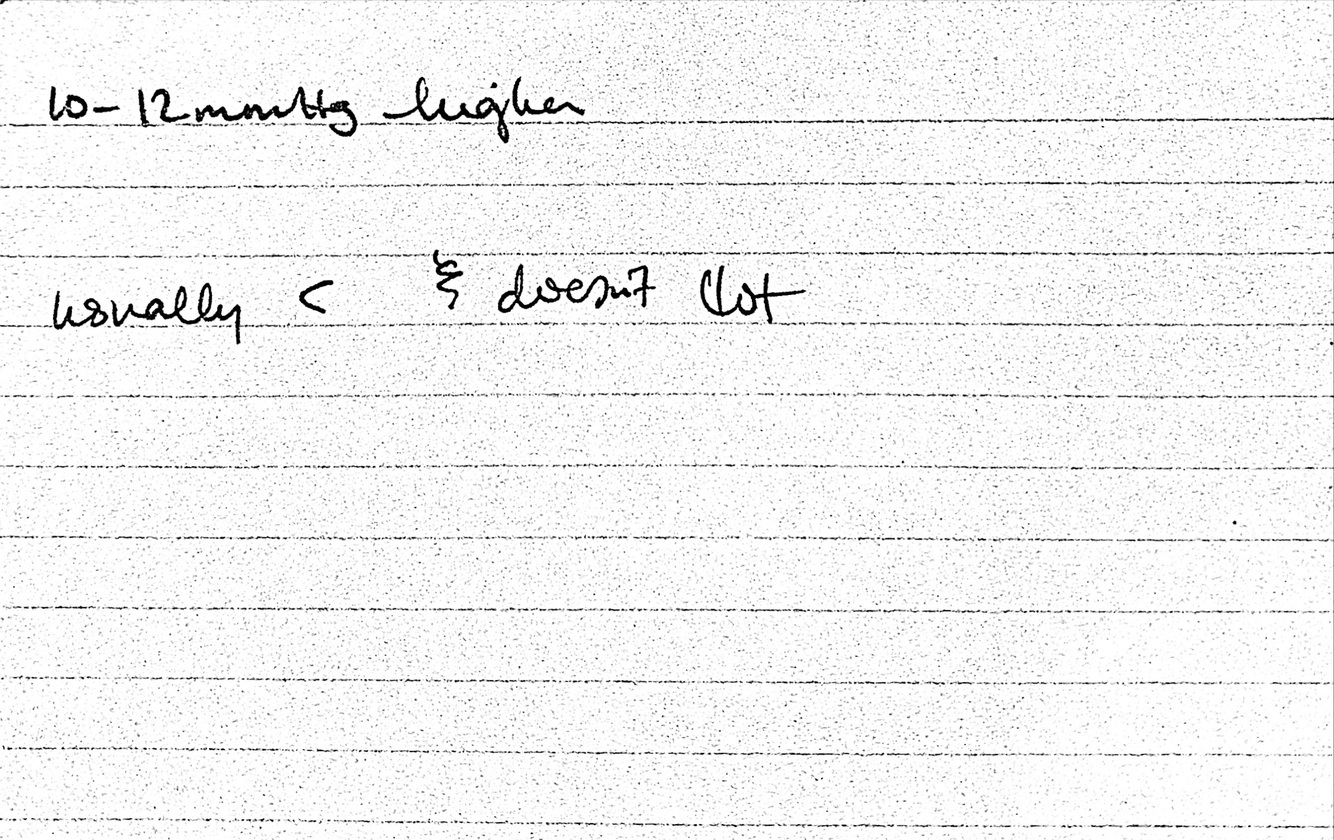 10-12 mmHg higher
usually < & doesn't clot